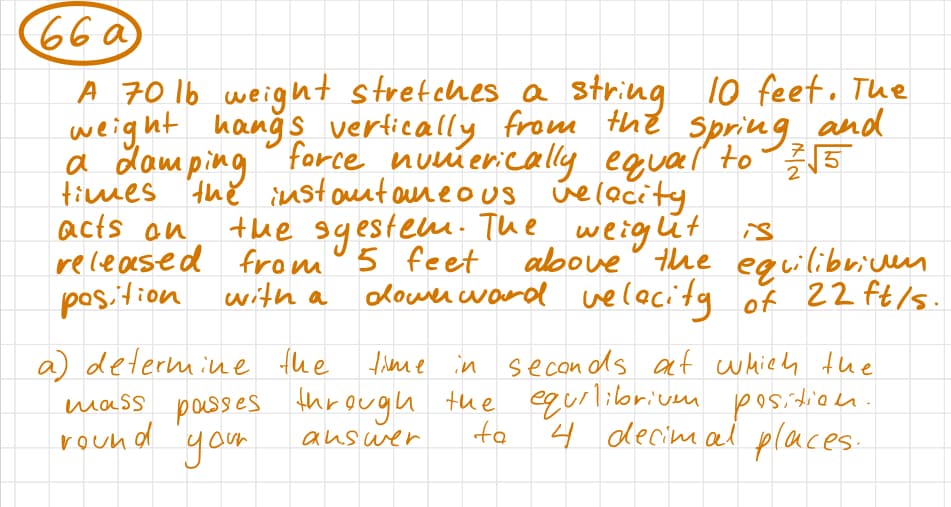 66 a
A 70 lb weight stretches a string 10 feet. The
weight hangs vertically from the spring and
a damping force numerically equal to 7/2√5
times the instantaneous velocity
acts on the sgestem. The weight is
released from 5 feet above the equilibrium
position with a downward velocity of 22 ft/s.
a) determine the time in seconds at which the
mass passes through the equilibrium position.
round your answer to 4 decimal places.